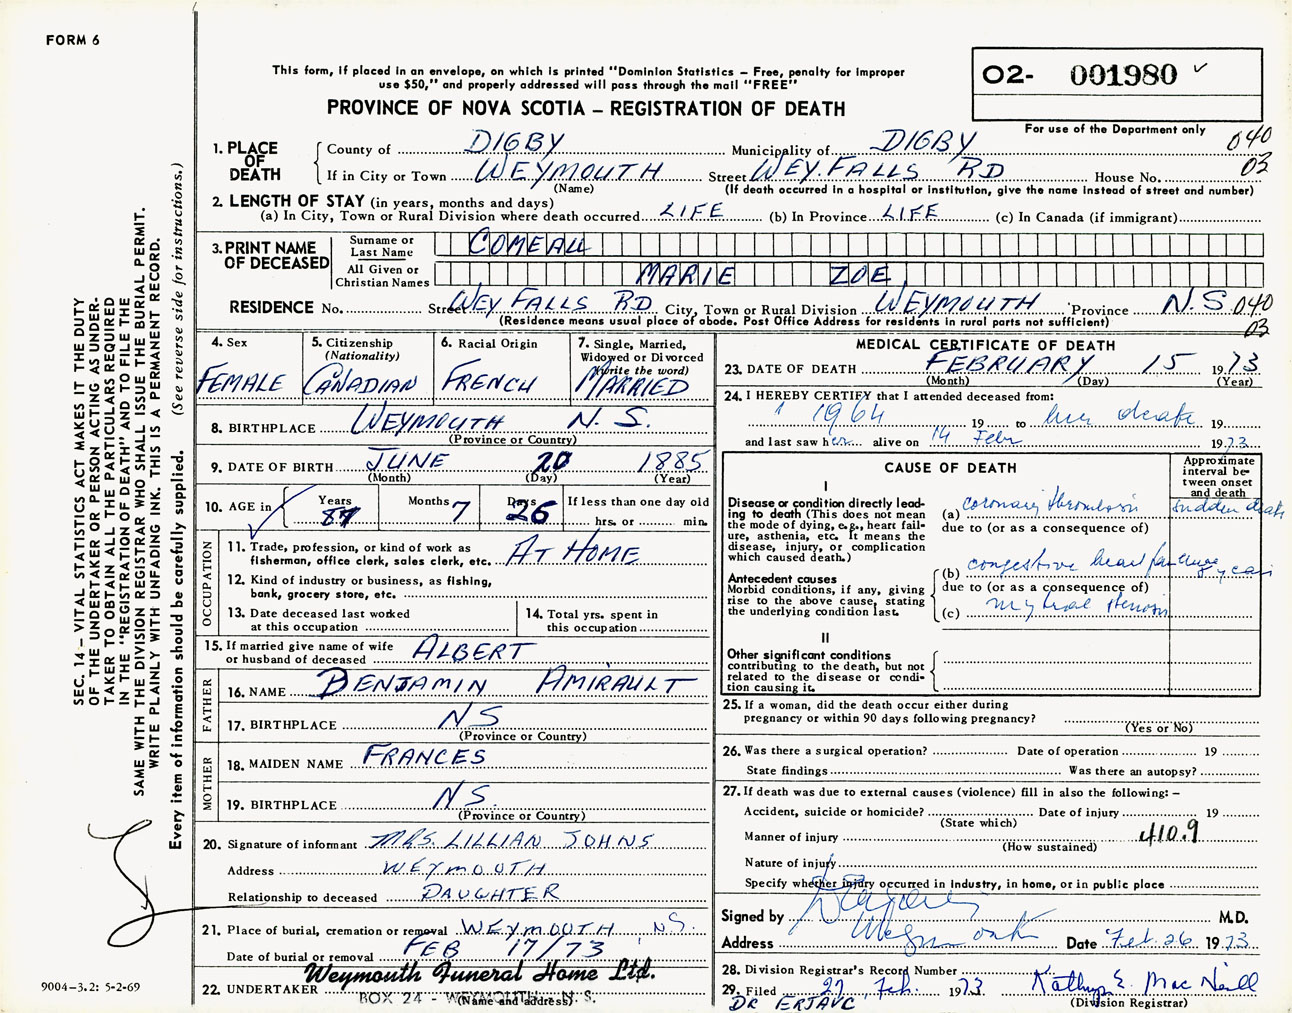 FORM 6
This form, if placed in an envelope, on which is printed "Dominion Statistics – Free, penalty for improper
use $50," and properly addressed will pass through the mail "FREE"
PROVINCE OF NOVA SCOTIA – REGISTRATION OF DEATH
02- 001980
For use of the Department only
040
03
1. PLACE OF DEATH
County of DIGBY Municipality of DIGBY
If in City or Town WEYMOUTH Street WEY. FALLS RD House No.
(Name) (If death occurred in a hospital or institution, give the name instead of street and number)
2. LENGTH OF STAY (in years, months and days)
(a) In City, Town or Rural Division where death occurred LIFE (b) In Province LIFE (c) In Canada (if immigrant)
3. PRINT NAME OF DECEASED
Surname or Last Name COMEAU
All Given or Christian Names MARIE ZOE
RESIDENCE No. Street WEY FALLS RD City, Town or Rural Division WEYMOUTH Province N.S. 040
(Residence means usual place of abode. Post Office Address for residents in rural parts not sufficient) 03
4. Sex FEMALE
5. Citizenship (Nationality) CANADIAN
6. Racial Origin FRENCH
7. Single, Married, Widowed or Divorced (Write the word) MARRIED
8. BIRTHPLACE WEYMOUTH N.S.
(Province or Country)
9. DATE OF BIRTH JUNE 20 1885
(Month) (Day) (Year)
10. AGE in Years 87 Months 7 Days 26 If less than one day old
hrs. or min.
OCCUPATION
11. Trade, profession, or kind of work as
fisherman, office clerk, sales clerk, etc. AT HOME
12. Kind of industry or business, as fishing,
bank, grocery store, etc.
13. Date deceased last worked
at this occupation
14. Total yrs. spent in
this occupation
15. If married give name of wife
or husband of deceased ALBERT
FATHER
16. NAME BENJAMIN AMIRAULT
17. BIRTHPLACE NS
(Province or Country)
MOTHER
18. MAIDEN NAME FRANCES
19. BIRTHPLACE NS.
(Province or Country)
20. Signature of informant MRS. LILLIAN JOHNS
Address WEYMOUTH
Relationship to deceased DAUGHTER
21. Place of burial, cremation or removal WEYMOUTH N.S.
Date of burial or removal FEB 17/73
22. UNDERTAKER Weymouth Funeral Home Ltd.
BOX 24 - WEYMOUTH, N. S.
(Name and address)
MEDICAL CERTIFICATE OF DEATH
23. DATE OF DEATH FEBRUARY 15 1973
(Month) (Day) (Year)
24. I HEREBY CERTIFY that I attended deceased from:
1964 19 to her death 19
and last saw her alive on 14 Febr 1973
CAUSE OF DEATH
Approximate interval between onset and death
I
Disease or condition directly lead-
ing to death (This does not mean
the mode of dying, e.g., heart fail-
ure, asthenia, etc. It means the
disease, injury, or complication
which caused death.)
(a) coronary thrombosis sudden death
due to (or as a consequence of)
Antecedent causes
Morbid conditions, if any, giving
rise to the above cause, stating
the underlying condition last.
(b) congestive heart years
due to (or as a consequence of)
(c) mytral stenosis
II
Other significant conditions
contributing to the death, but not
related to the disease or condi-
tion causing it.
25. If a woman, did the death occur either during
pregnancy or within 90 days following pregnancy?
(Yes or No)
26. Was there a surgical operation? Date of operation 19
State findings Was there an autopsy?
27. If death was due to external causes (violence) fill in also the following: –
Accident, suicide or homicide? Date of injury 19
(State which)
Manner of injury 410.9
(How sustained)
Nature of injury
Specify whether injury occurred in industry, in home, or in public place
Signed by M.D.
Address Weymouth Date Feb. 26 1973
28. Division Registrar's Record Number
29. Filed 27 Feb. 1973 Kathryn E. MacNeill
DR ERJAVC (Division Registrar)
SEC. 14 – VITAL STATISTICS ACT MAKES IT THE DUTY
OF THE UNDERTAKER OR PERSON ACTING AS UNDER-
TAKER TO OBTAIN ALL THE PARTICULARS REQUIRED
IN THE "REGISTRATION OF DEATH" AND TO FILE THE
SAME WITH THE DIVISION REGISTRAR WHO SHALL ISSUE THE BURIAL PERMIT.
WRITE PLAINLY WITH UNFADING INK. THIS IS A PERMANENT RECORD.
Every item of information should be carefully supplied. (See reverse side for instructions.)
9004-3.2: 5-2-69